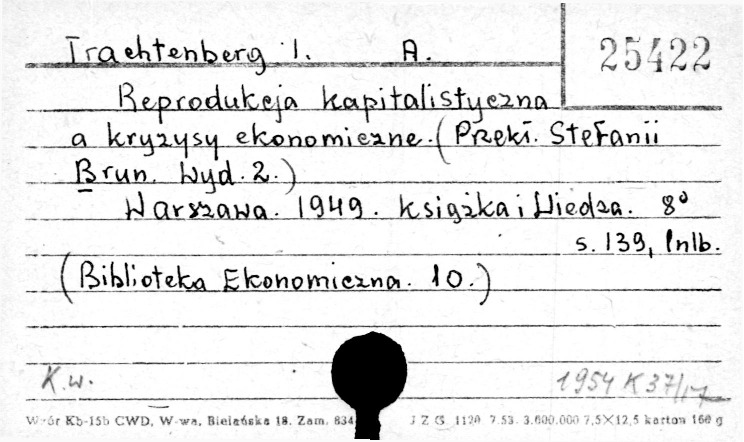 Trachtenberg I. A.
25422
Reprodukcja kapitalistyczna
a kryzysy ekonomiczne. (Przekł. Stefanii
Brun. Wyd. 2.)
Warszawa. 1949. Książka i Wiedza. 8°
s. 139, 1nlb.
(Biblioteka Ekonomiczna. 10.)
K.w.
1954 K 37/17
Wzór Kb-15b CWD, W-wa, Bielańska 18. Zam. 834 J Z G 1120 7.53. 3.600.000 7,5×12,5 karton 160 g